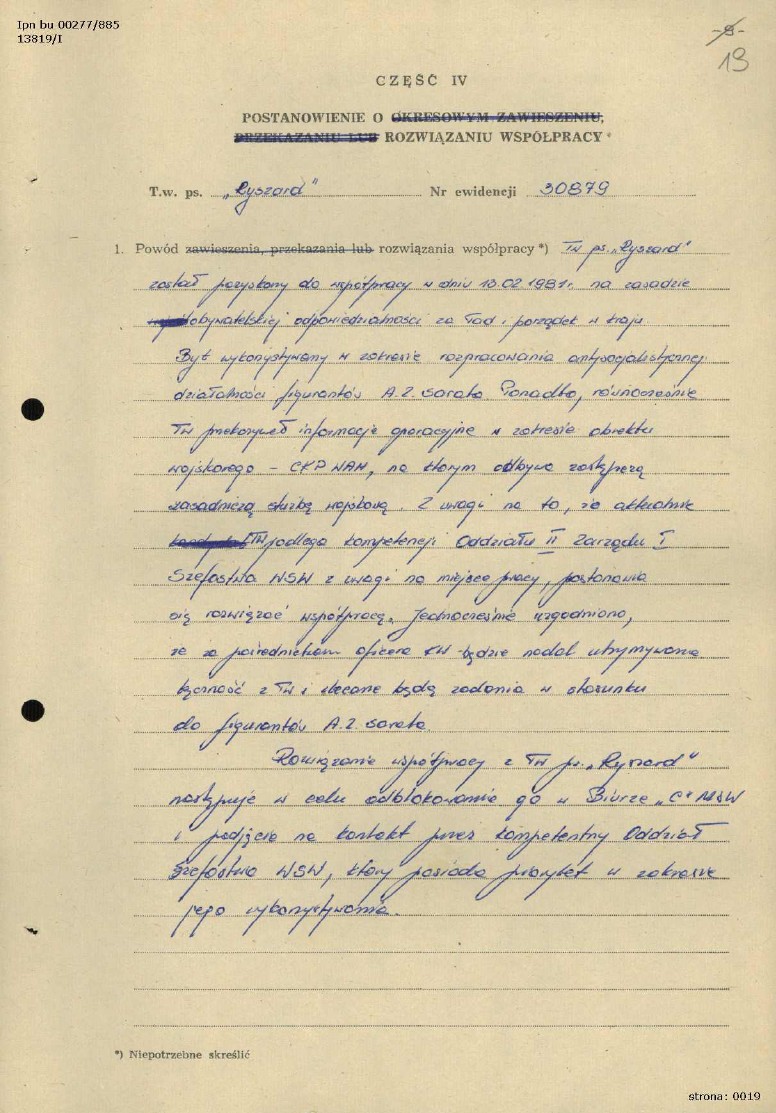 Ipn bu 00277/885
13819/I
-9-
19
CZĘŚĆ IV
POSTANOWIENIE O OKRESOWYM ZAWIESZENIU,
PRZEKAZANIU LUB ROZWIĄZANIU WSPÓŁPRACY *
T.w. ps. „Ryszard" Nr ewidencji 30879
1. Powód zawieszenia, przekazania lub rozwiązania współpracy *) TW ps. „Ryszard"
został pozyskany do współpracy w dniu 13.02 1981r. na zasadzie
obywatelskiej odpowiedzialności za ład i porządek w kraju
Był wykorzystywany w zakresie rozpracowania antysocjalistycznej
działalności figurantów Ponadto, równocześnie
TW przekazywał informacje operacyjne w zakresie obiektu
wojskowego - na którym odbywa zastępczą
zasadniczą służbę wojskową. Z uwagi na to, że aktualnie
TW podlega kompetencji Oddziału II Zarządu I
Szefostwa WSW z uwagi na miejsce pracy, postanawia
się rozwiązać współpracę. Jednocześnie uzgodniono,
że za pośrednictwem oficera będzie nadal utrzymywana
łączność z TW i zlecane będą zadania w stosunku
do figurantów
Rozwiązanie współpracy z TW ps. „Ryszard"
następuje w celu odblokowania go w Biurze „C" MSW
i podjęcia na kontakt przez kompetentny Oddział
Szefostwa WSW, który posiada priorytet w zakresie
jego wykorzystywania.
*) Niepotrzebne skreślić
strona: 0019